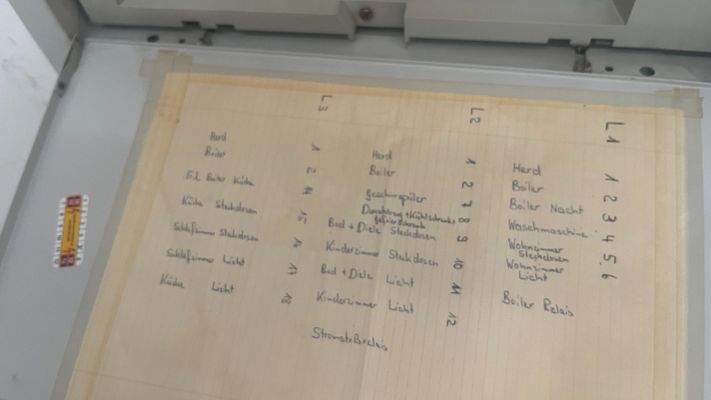 L1
1 Herd
2 Boiler
3 Boiler Nacht
4 Waschmaschine
5 Wohnzimmer
Steckdosen
6 Wohnzimmer
Licht
Boiler Relais
L2
1 Herd
2 Boiler
7 Geschirrspüler
8 Dunstabzug + Kühlschrank
Gefrierschrank
9 Bad + Diele Steckdosen
10 Kinderzimmer Steckdosen
11 Bad + Diele Licht
12 Kinderzimmer Licht
Stromstoßrelais
L3
1 Herd
2 Boiler
Boiler Küche
15 Küche Steckdosen
Schlafzimmer Steckdosen
17 Schlafzimmer Licht
18 Küche Licht